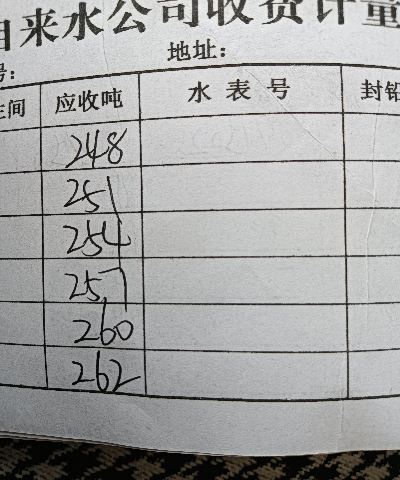 自来水公司收费计量
地址：
号：
间 应收吨 水表号 封铅
248
251
254
257
260
262